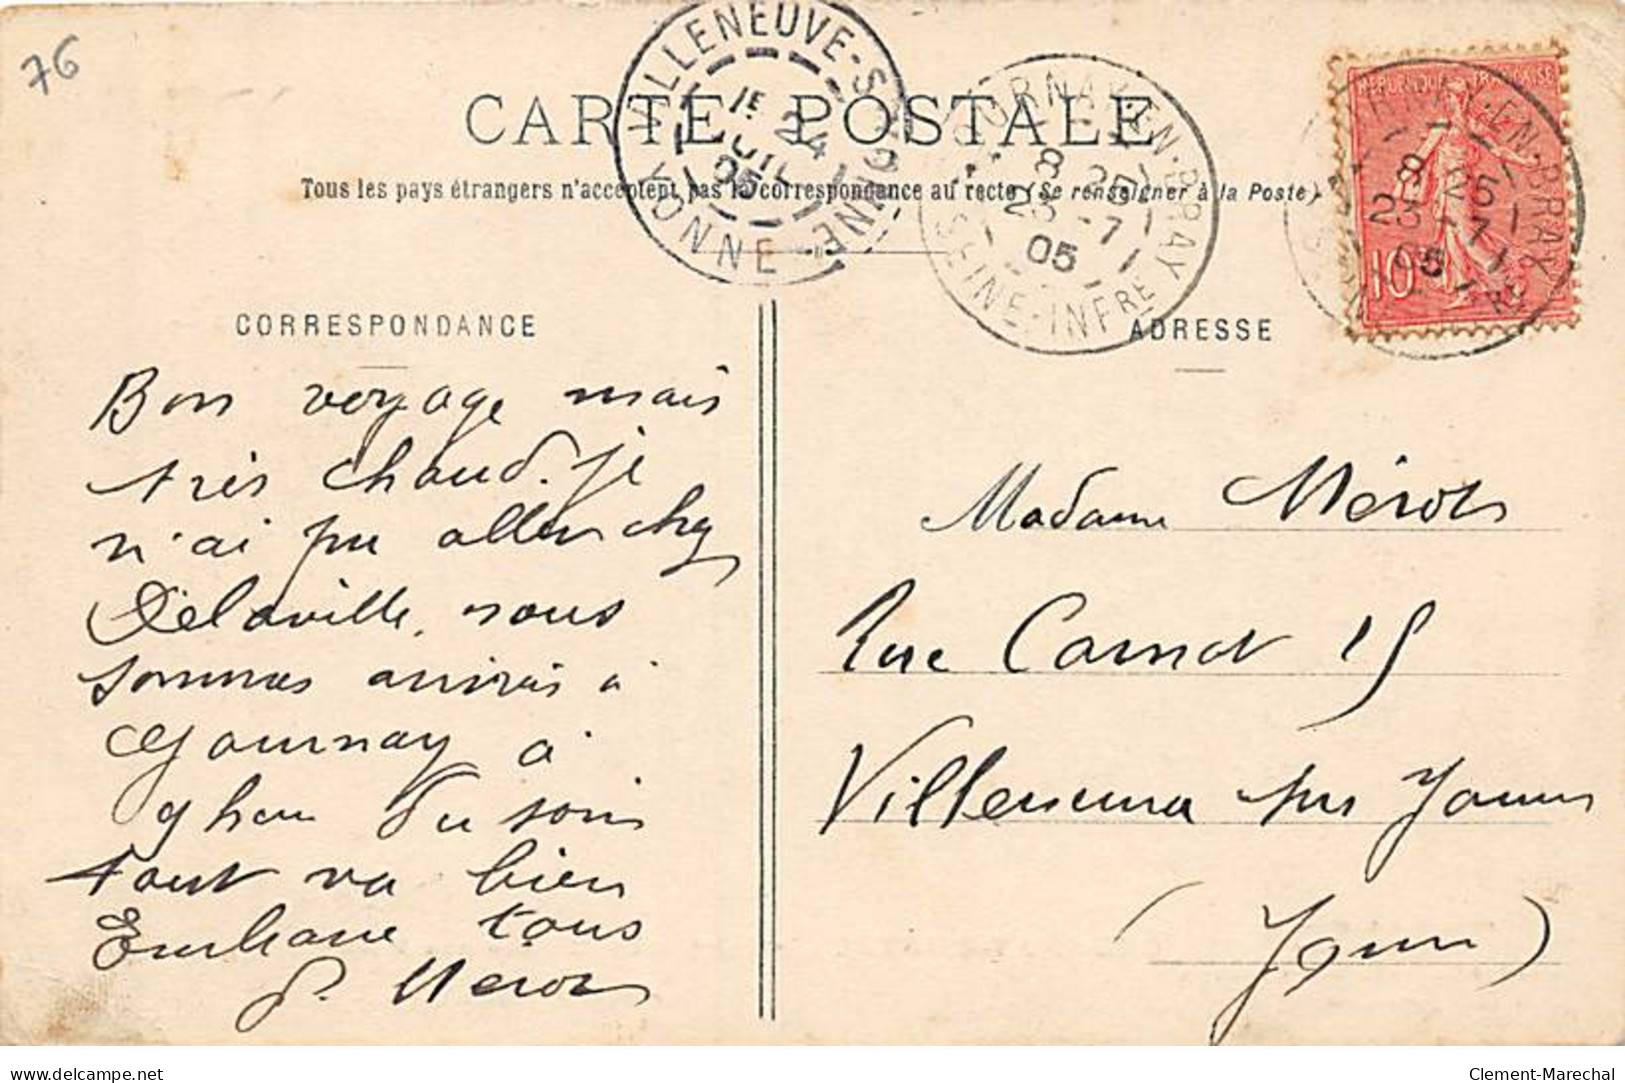 76
CARTE POSTALE
Tous les pays étrangers n'acceptent pas la correspondance au recto (Se renseigner à la Poste)
VILLENEUVE-S-YONNE
24
05
YONNE
GOURNAY-EN-BRAY
8 25
23 -7
05
SEINE-INFRE
REPUBLIQUE FRANÇAISE
10
GOURNAY-EN-BRAY
8 25
23 -7
05
CORRESPONDANCE
Bon voyage mais
très chaud. je
n'ai pu aller chez
Delaville, nous
sommes arrivés à
Gournay à
9 heu du soir
tout va bien
Embrasse tous
P. Merois
ADRESSE
Madame Mérois
Rue Carnot 15
Villeneuve sur Yonne
(Yonne)
delcampe.net
Clement-Marechal